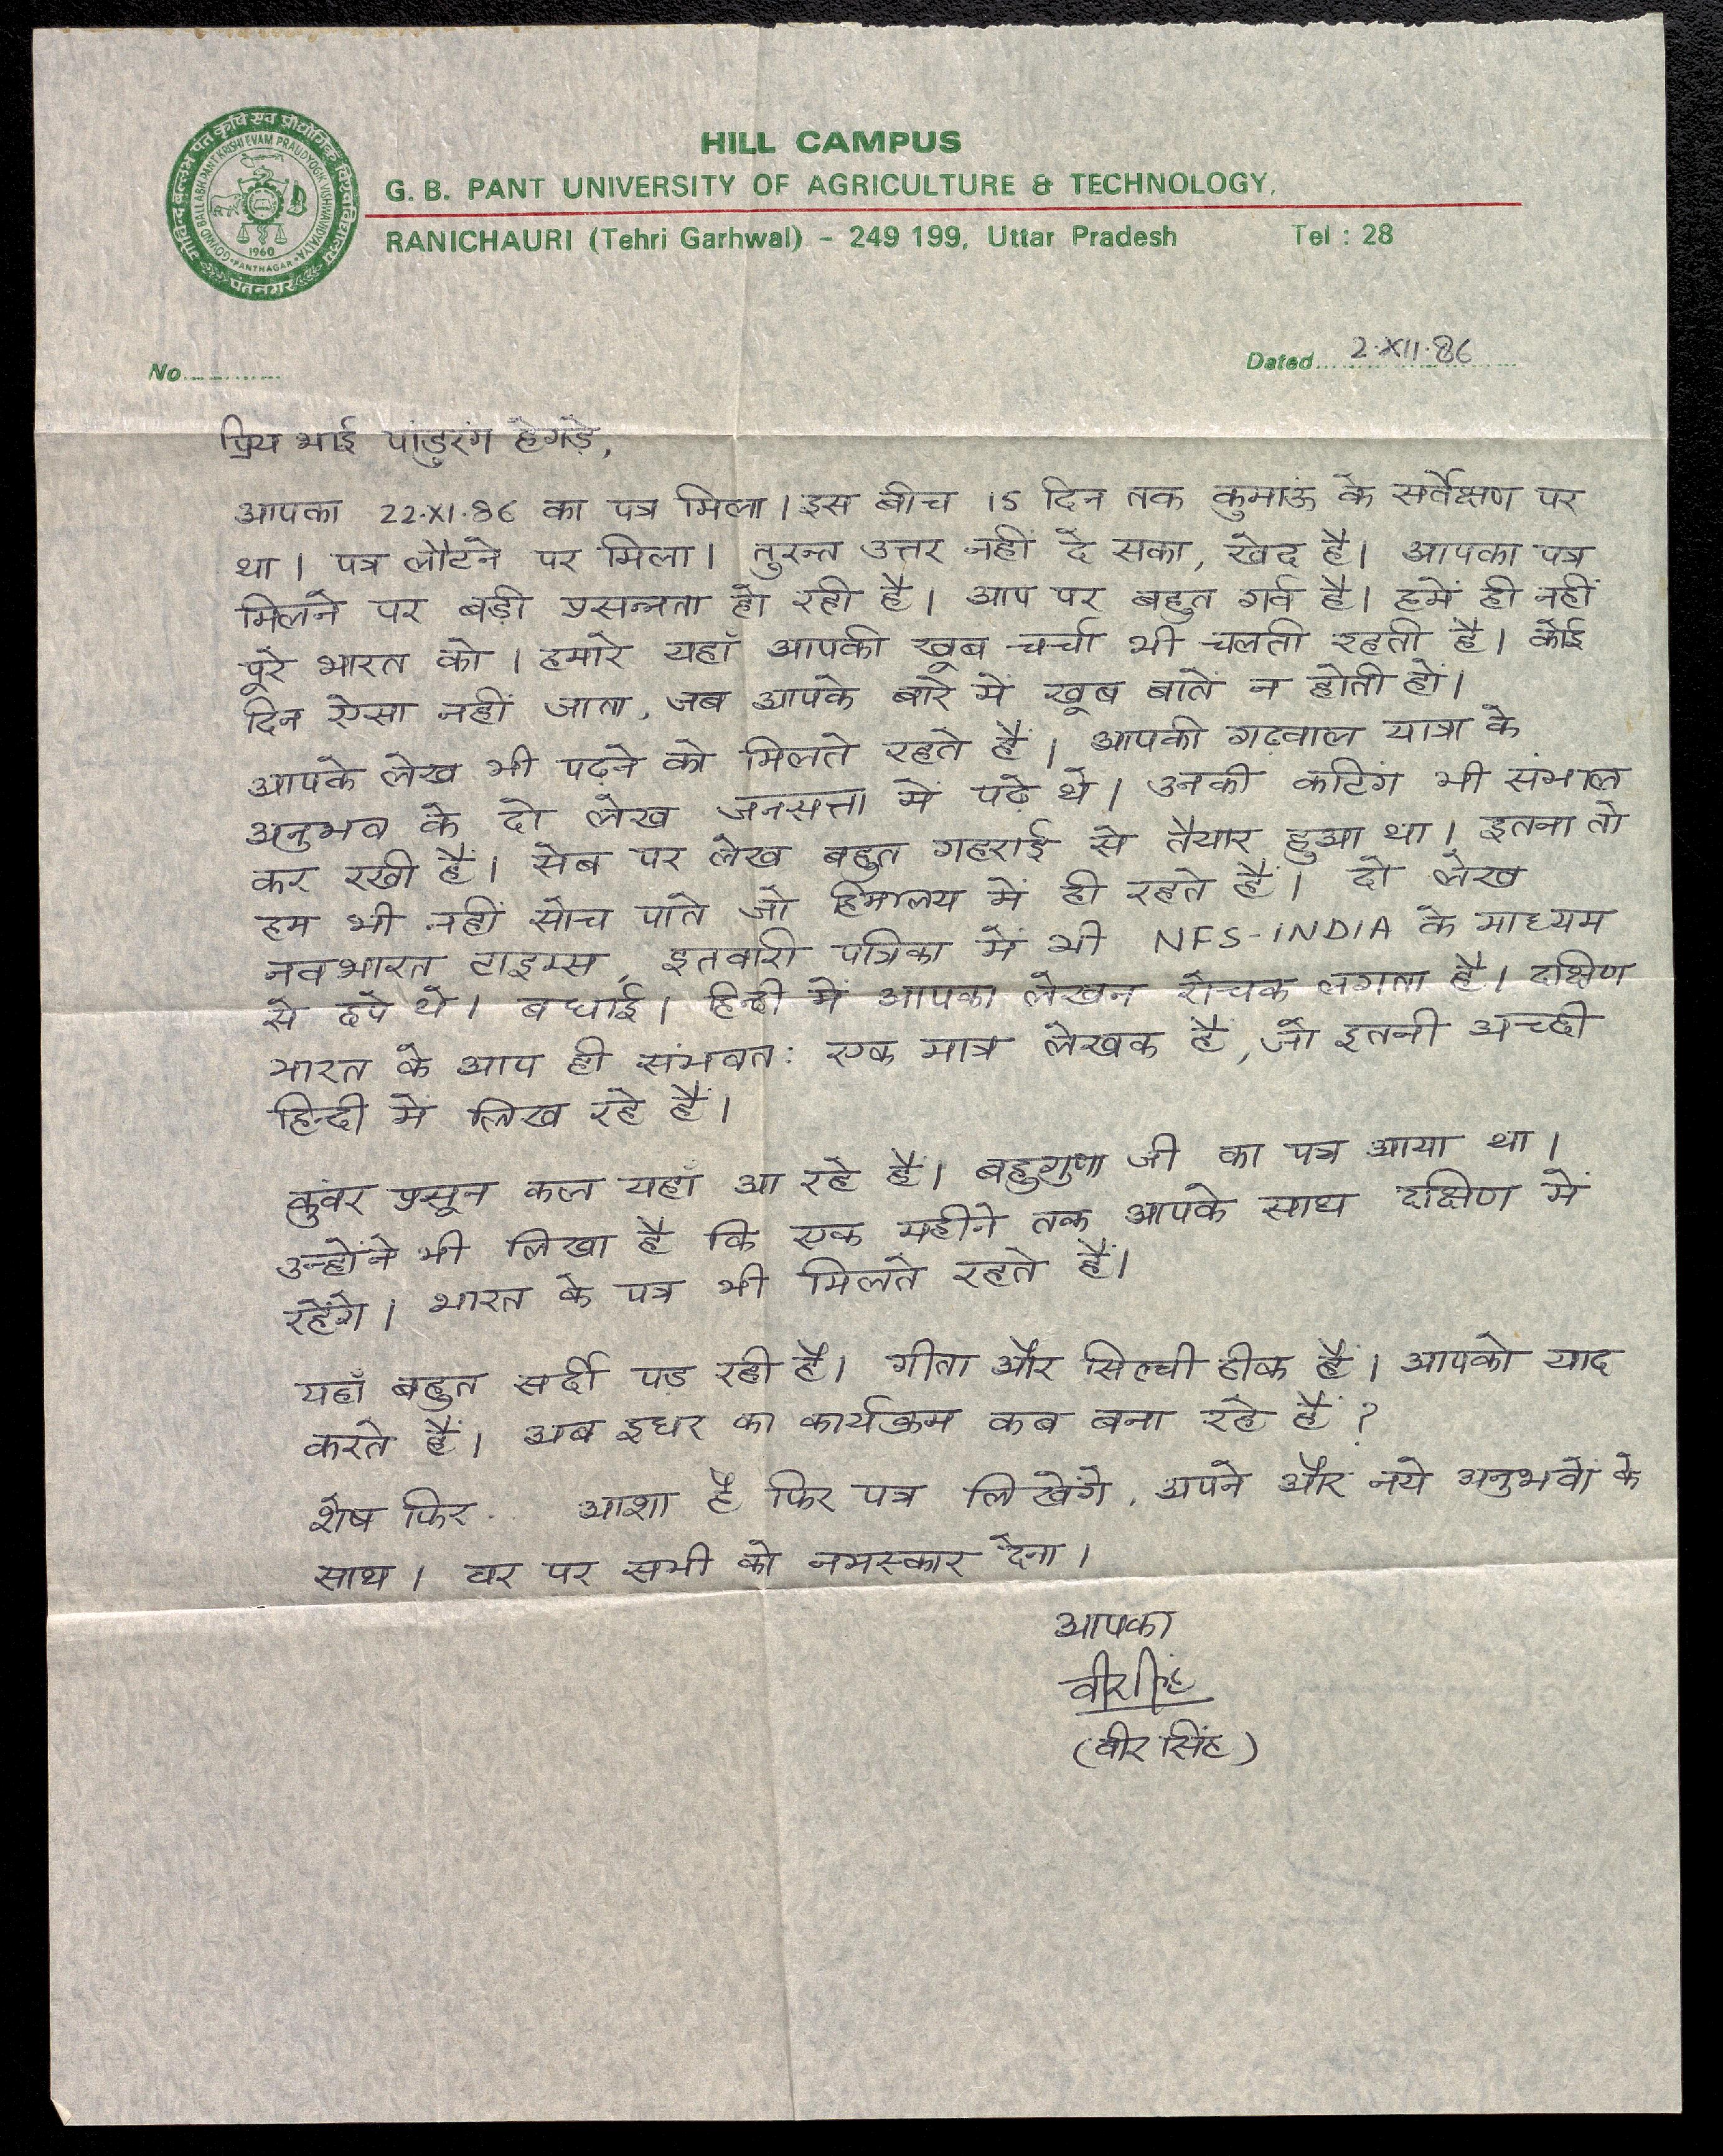 गोविन्द बल्लभ पंत कृषि एवं प्रौद्योगिक विश्वविद्यालय
GOVIND BALLABH PANT KRISHI EVAM PRAUDYOGIK VISHWAVIDYALAYA
1960
PANTNAGAR
पंतनगर
HILL CAMPUS
G. B. PANT UNIVERSITY OF AGRICULTURE & TECHNOLOGY,
RANICHAURI (Tehri Garhwal) - 249 199, Uttar Pradesh Tel : 28
No............ Dated... 2.XII.86
प्रिय भाई पांडुरंग हेगड़े,
आपका 22.XI.86 का पत्र मिला। इस बीच 15 दिन तक कुमाऊं के सर्वेक्षण पर
था। पत्र लौटने पर मिला। तुरन्त उत्तर नहीं दे सका, खेद है। आपका पत्र
मिलने पर बड़ी प्रसन्नता हो रही है। आप पर बहुत गर्व है। हमें ही नहीं
पूरे भारत को। हमारे यहाँ आपकी खूब चर्चा भी चलती रहती है। कोई
दिन ऐसा नहीं जाता, जब आपके बारे में खूब बातें न होती हों।
आपके लेख भी पढ़ने को मिलते रहते हैं। आपकी गढ़वाल यात्रा के
अनुभव के दो लेख जनसत्ता में पढ़े थे। उनकी कटिंग भी संभाल
कर रखी हैं। सेब पर लेख बहुत गहराई से तैयार हुआ था। इतना तो
हम भी नहीं सोच पाते जो हिमालय में ही रहते हैं। दो लेख
नवभारत टाइम्स, इतवारी पत्रिका में भी NFS-INDIA के माध्यम
से छपे थे। बधाई। हिन्दी में आपका लेखन रोचक लगता है। दक्षिण
भारत के आप ही संभवत: एक मात्र लेखक हैं, जो इतनी अच्छी
हिन्दी में लिख रहे हैं।
कुंवर प्रसून कल यहाँ आ रहे हैं। बहुगुणा जी का पत्र आया था।
उन्होंने भी लिखा है कि एक महीने तक आपके साथ दक्षिण में
रहेंगे। भारत के पत्र भी मिलते रहते हैं।
यहाँ बहुत सर्दी पड़ रही है। गीता और सिल्ची ठीक हैं। आपको याद
करते हैं। अब इधर का कार्यक्रम कब बना रहे हैं?
शेष फिर.. आशा है फिर पत्र लिखेंगे, अपने और नये अनुभवों के
साथ। घर पर सभी को नमस्कार देना।
आपका
वीरसिंह
(वीर सिंह)